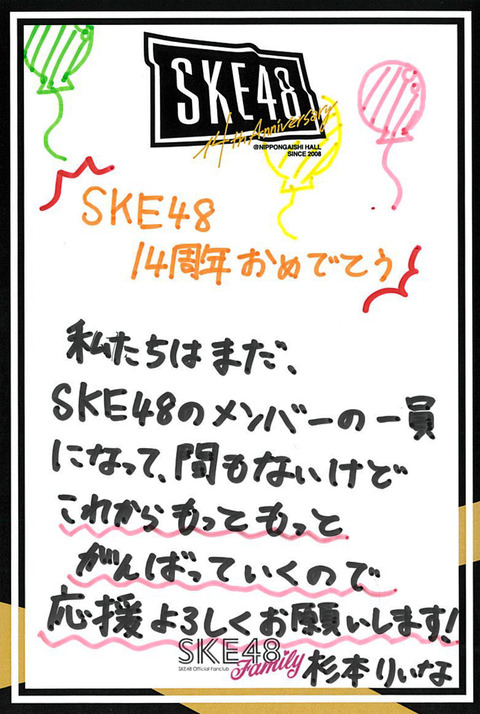 SKE48
14th Anniversary
@NIPPONGAISHI HALL
SINCE 2008
SKE48
14周年おめでとう
私たちはまだ、
SKE48のメンバーの一員
になって、間もないけど
これからもっともっと
がんばっていくので
応援よろしくお願いします!
SKE48
SKE48 Official Fanclub
Family
杉本りいな